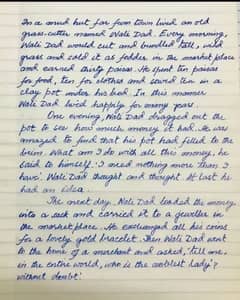 In a mud hut far from town lived an old
grass-cutter named Wali Dad. Every morning,
Wali Dad would cut and bundled tall, wild
grass and sold it as fodder in the market place
and earned thirty paisas. He spent ten paisas
for food, ten for clothes and saved ten in a
clay pot under his bed. In this manner
Wali Dad lived happily for many years.
One evening, Wali Dad dragged out the
pot to see how much money it had. He was
amazed to find that his pot had filled to the
brim. What am I do with all this money, he
said to himself. 'I need nothing more than I
have'. Wali Dad thought and thought. At last he
had an idea.
The next day, Wali Dad loaded the money
into a sack and carried it to a jeweller in
the market place. He exchanged all his coins
for a lovely gold bracelet. Then Wali Dad went
to the home of a merchant and asked, 'Tell me,
in the entire world, who is the noblest lady'?
without doubt!